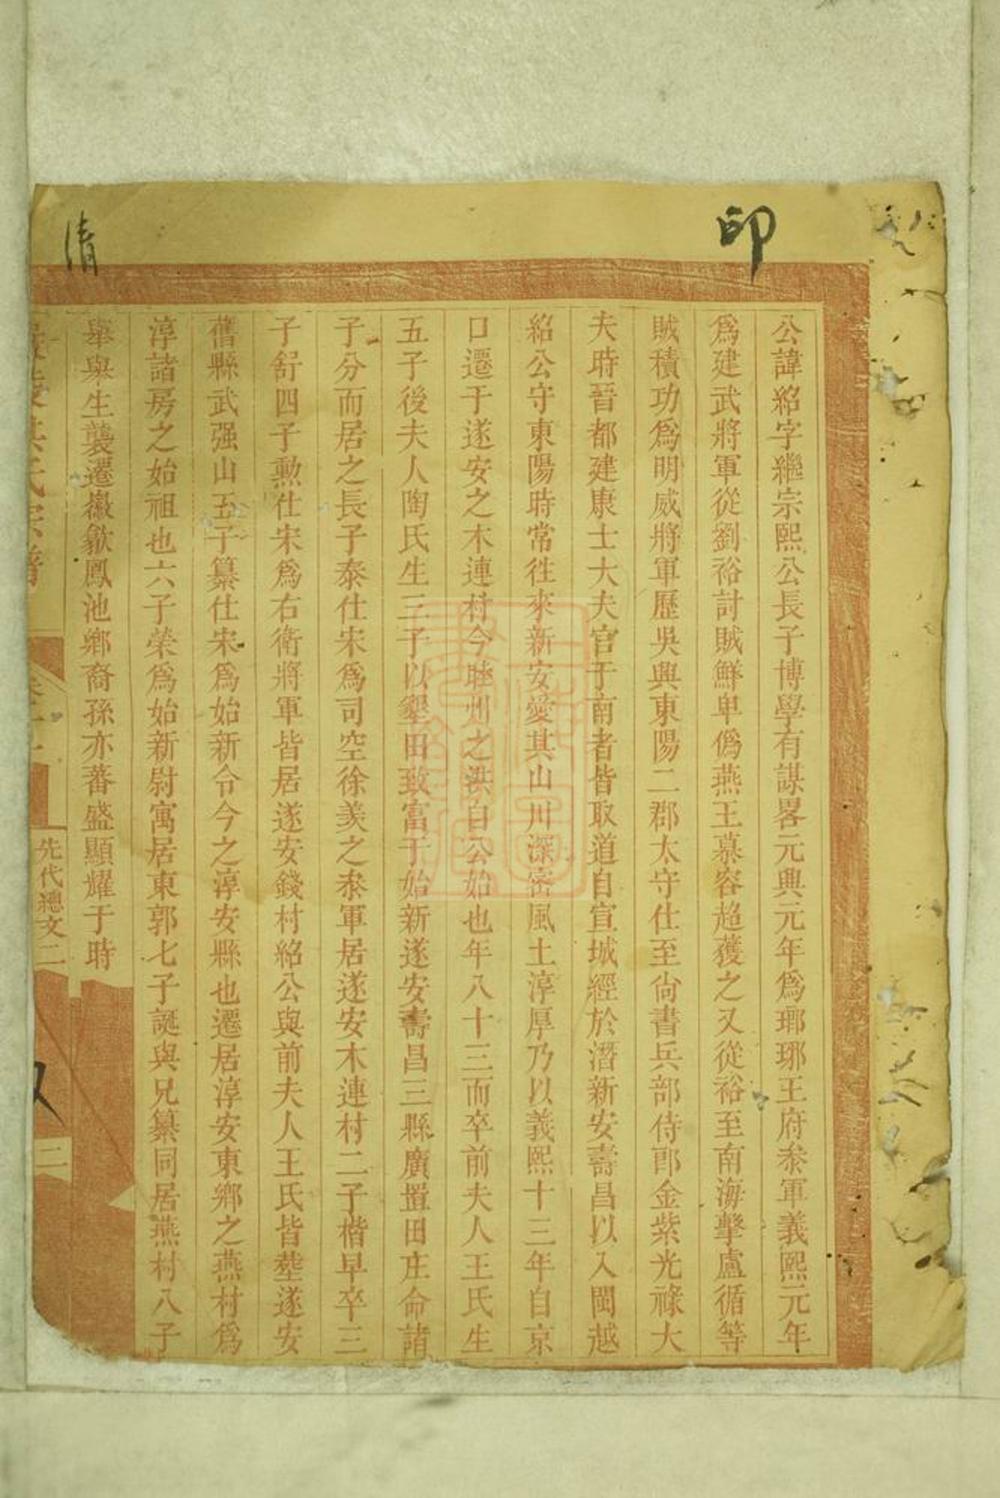 印
清
公諱紹字繼宗熙公長子博學有謀畧元興元年爲瑯琊王府叅軍義熙元年
爲建武將軍從劉裕討賊鮮卑僞燕王慕容超獲之又從裕至南海擊盧循等
賊積功爲明威將軍歷吳興東陽二郡太守仕至尙書兵部侍郎金紫光祿大
夫時晉都建康士大夫官于南者皆取道自宣城經於潛新安壽昌以入閩越
紹公守東陽時常徃來新安愛其山川深密風土淳厚乃以義熙十三年自京
口遷于遂安之木連村今睦州之洪自公始也年八十三而卒前夫人王氏生
五子後夫人陶氏生三子以墾田致富于始新遂安壽昌三縣廣置田庄命諸
子分而居之長子泰仕宋爲司空徐羨之叅軍居遂安木連村二子楷早卒三
子舒四子勲仕宋爲右衛將軍皆居遂安錢村紹公與前夫人王氏皆塟遂安
舊縣武强山五子纂仕宋爲始新令今之淳安縣也遷居淳安東鄉之燕村爲
淳諸房之始祖也六子榮爲始新尉寓居東郭七子誕與兄纂同居燕村八子
舉舉生襲遷徽歙鳳池鄉裔孫亦蕃盛顯耀于時
氏宗譜
先代總文二
二